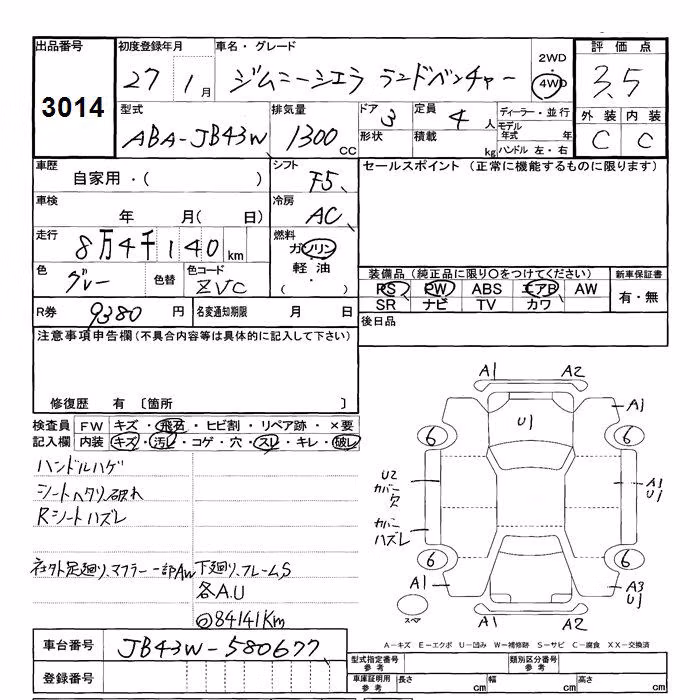 出品番号 初度登録年月 車名・グレード 2WD・ 評価点
3014 27 1月 ジムニーシエラ ランドベンチャー 4WD 3.5
型式 排気量 ドア 定員 ディーラー・並行 外装 内装
ABA-JB43W 1300 CC 3 4人 モデル年式 年 C C
形状 積載 kg ハンドル 左・右
車歴 シフト セールスポイント (正常に機能するものに限ります)
自家用・( ) F5
車検 冷房
年 月( 日) AC
走行 燃料
8万4千140km ガソリン
色 色替 色コード 軽油
グレー ZVC ( ・ )
装備品(純正品に限り〇をつけてください) 新車保証書
PS PW ABS エアB AW 有・無
SR ナビ TV カワ
R券 9380円 名変通知期限 月 日 後日品
注意事項申告欄(不具合内容等は具体的に記入して下さい)
修復歴 有 〔箇所 〕
検査員 FW キズ・飛石・ヒビ割・リペア跡・×要
記入欄 内装 キズ・汚レ・コゲ・穴・スレ・キレ・破レ
ハンドルハゲ
シートヘタリ、破れ
Rシートハズレ
社外足廻り、マフラー 一部AW 下廻り、フレームS
各A.U
◎84141Km
A1 A2
A1
U1
6 6
U2 カバー欠
A1 U1
カバーハズレ
6 6
A1 A3 U1
スペア A1 A2
A-キズ E-エクボ U-凹み W-補修跡 S-サビ C-腐食 XX-交換済
車台番号 JB43W-580677
登録番号
型式指定番号 参考 類別区分番号 参考
車庫証明用 参考 長さ cm 幅 cm 高さ cm